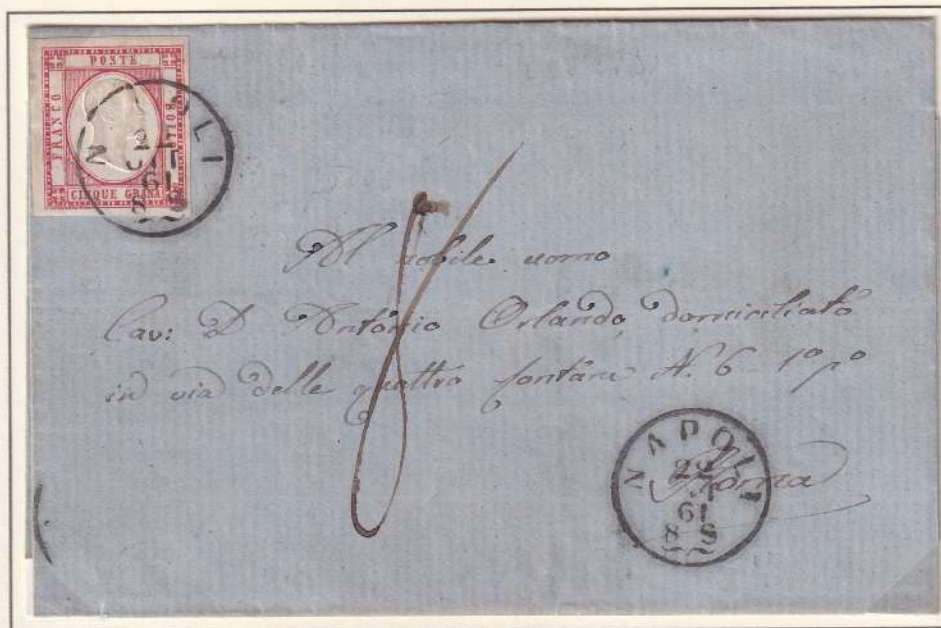 POSTE
FRANCO
BOLLO
CINQUE GRANA
NAPOLI
61
8 S
8
Al nobile uomo
Cav: D Antonio Orlando domiciliato
in via delle quattro fontane N. 6 1º pº
Roma
NAPOLI
61
8 S